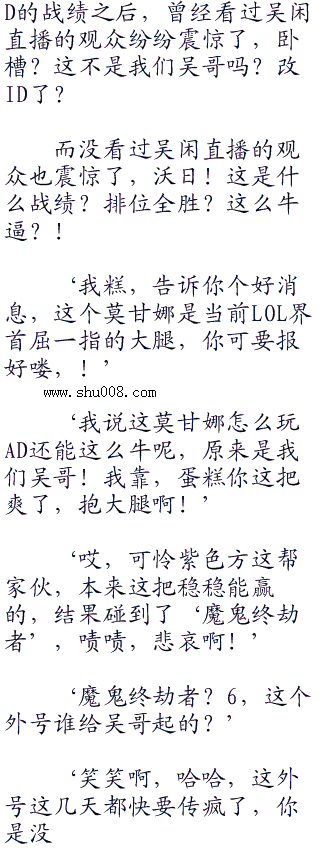 D的战绩之后，曾经看过吴闲
直播的观众纷纷震惊了，卧
槽？这不是我们吴哥吗？改
ID了？
而没看过吴闲直播的观
众也震惊了，沃日！这是什
么战绩？排位全胜？这么牛
逼？！
‘我糕，告诉你个好消
息，这个莫甘娜是当前LOL界
首屈一指的大腿，你可要报
好喽，！’
www.shu008.com
‘我说这莫甘娜怎么玩
AD还能这么牛呢，原来是我
们吴哥！我靠，蛋糕你这把
爽了，抱大腿啊！’
‘哎，可怜紫色方这帮
家伙，本来这把稳稳能赢
的，结果碰到了‘魔鬼终劫
者’，啧啧，悲哀啊！’
‘魔鬼终劫者？6，这个
外号谁给吴哥起的？’
‘笑笑啊，哈哈，这外
号这几天都快要传疯了，你
是没